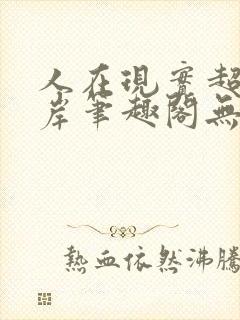 人在現實超
岸筆趣閣無
熱血依然沸騰